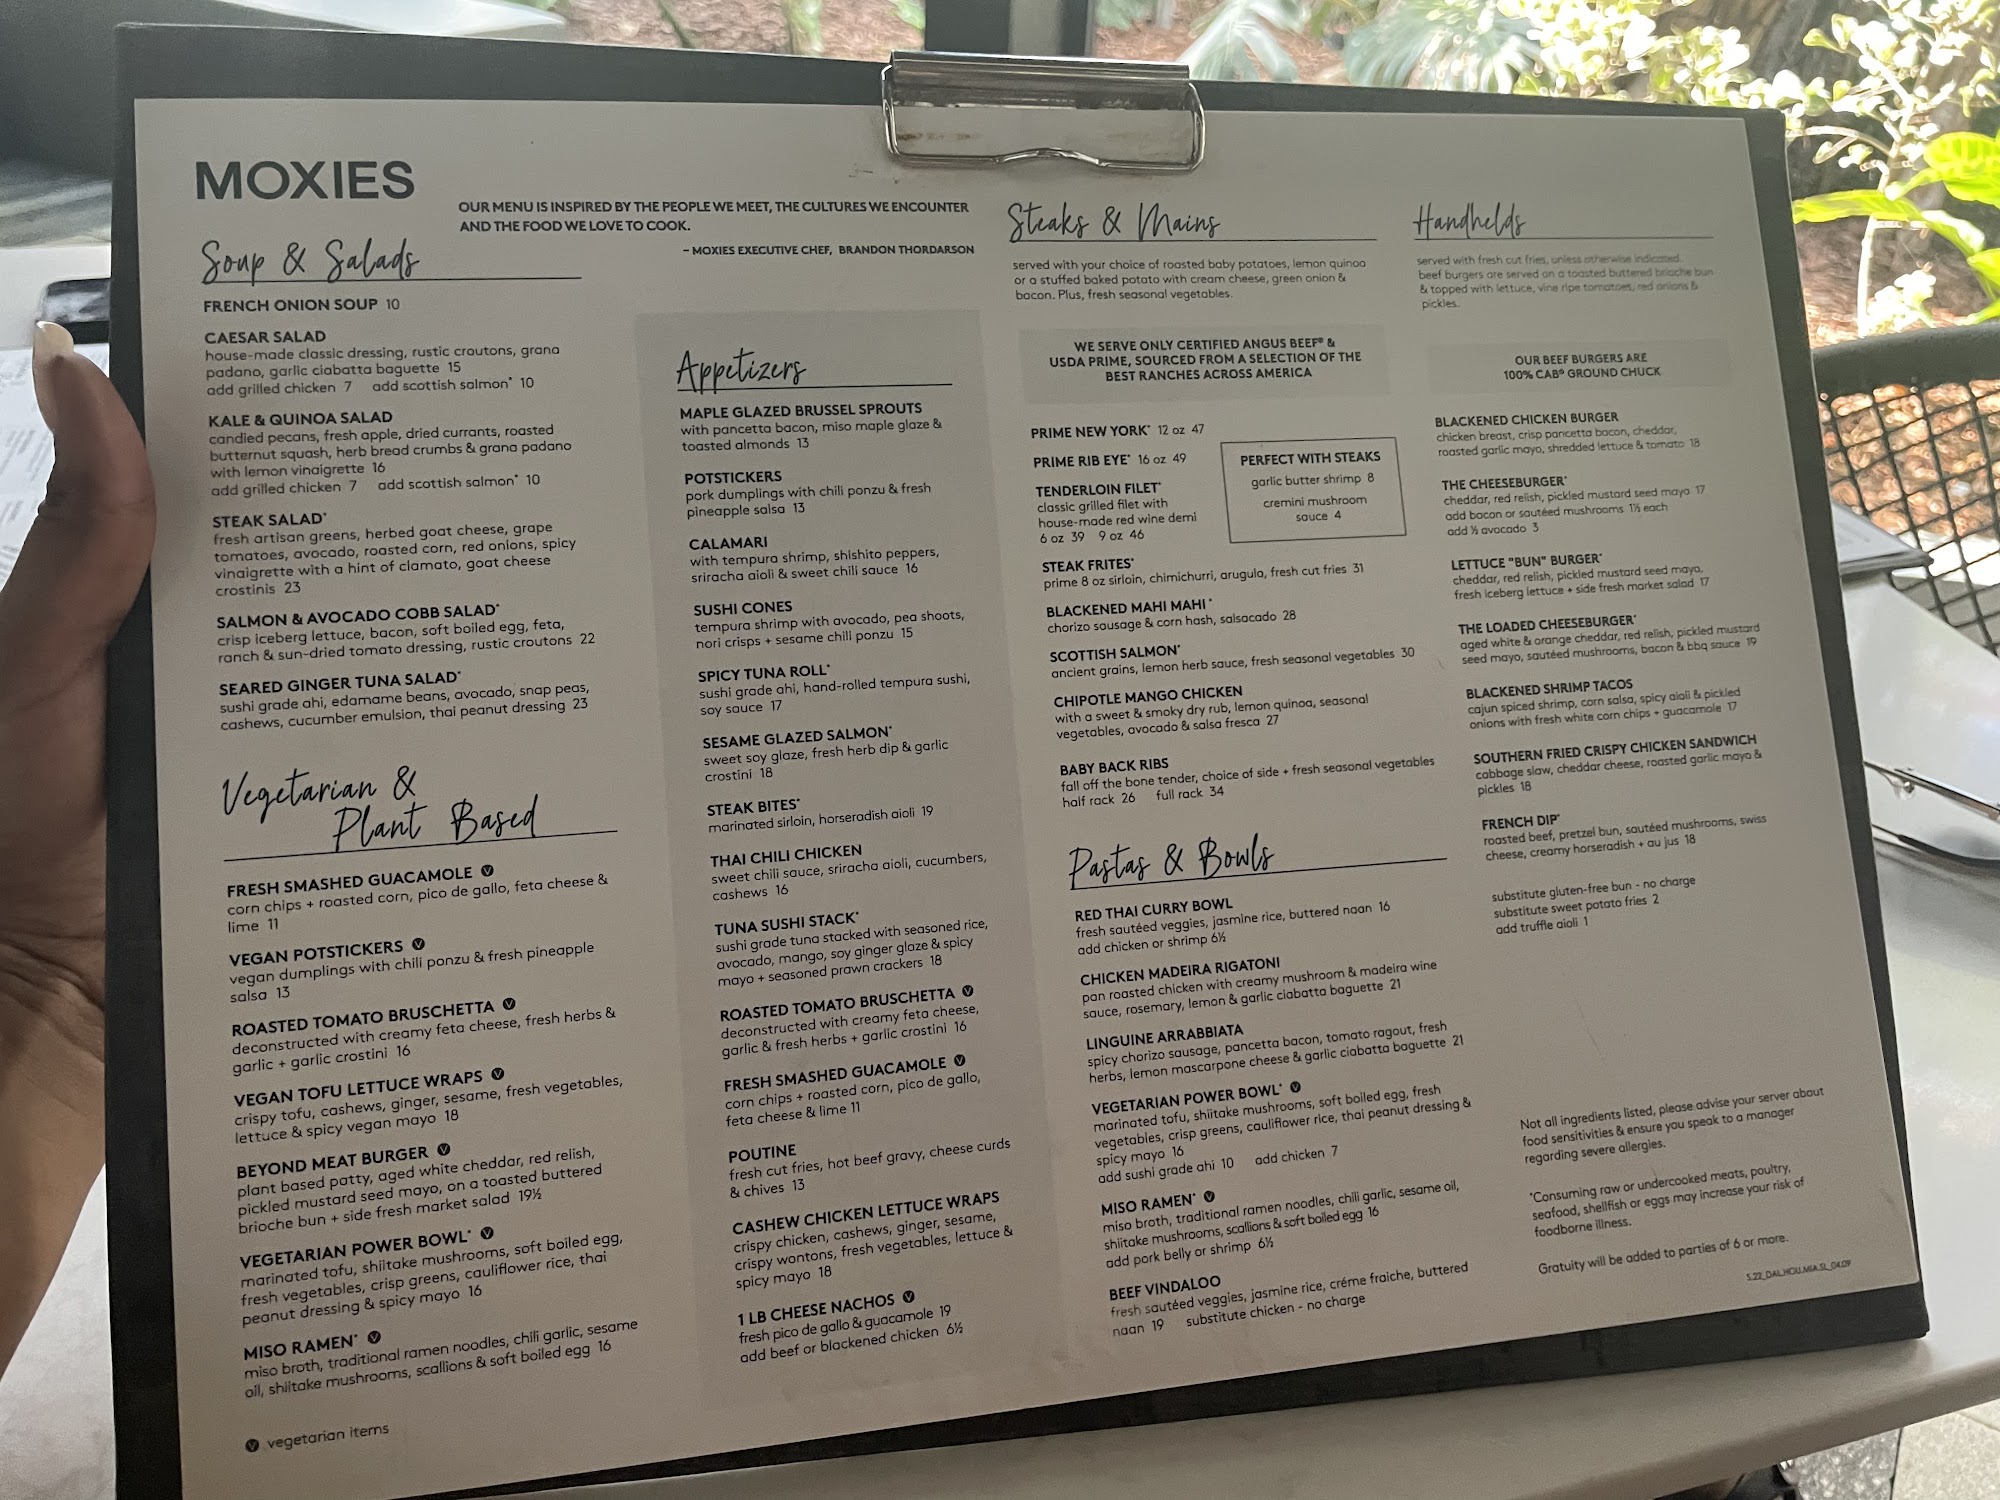 MOXIES
OUR MENU IS INSPIRED BY THE PEOPLE WE MEET, THE CULTURES WE ENCOUNTER
AND THE FOOD WE LOVE TO COOK.
– MOXIES EXECUTIVE CHEF, BRANDON THORDARSON
Soup & Salads
FRENCH ONION SOUP 10
CAESAR SALAD
house-made classic dressing, rustic croutons, grana
padano, garlic ciabatta baguette 15
add grilled chicken 7 add scottish salmon* 10
KALE & QUINOA SALAD
candied pecans, fresh apple, dried currants, roasted
butternut squash, herb bread crumbs & grana padano
with lemon vinaigrette 16
add grilled chicken 7 add scottish salmon* 10
STEAK SALAD*
fresh artisan greens, herbed goat cheese, grape
tomatoes, avocado, roasted corn, red onions, spicy
vinaigrette with a hint of clamato, goat cheese
crostinis 23
SALMON & AVOCADO COBB SALAD*
crisp iceberg lettuce, bacon, soft boiled egg, feta,
ranch & sun-dried tomato dressing, rustic croutons 22
SEARED GINGER TUNA SALAD*
sushi grade ahi, edamame beans, avocado, snap peas,
cashews, cucumber emulsion, thai peanut dressing 23
Vegetarian &
Plant Based
FRESH SMASHED GUACAMOLE V
corn chips + roasted corn, pico de gallo, feta cheese &
lime 11
VEGAN POTSTICKERS V
vegan dumplings with chili ponzu & fresh pineapple
salsa 13
ROASTED TOMATO BRUSCHETTA V
deconstructed with creamy feta cheese, fresh herbs &
garlic + garlic crostini 16
VEGAN TOFU LETTUCE WRAPS V
crispy tofu, cashews, ginger, sesame, fresh vegetables,
lettuce & spicy vegan mayo 18
BEYOND MEAT BURGER V
plant based patty, aged white cheddar, red relish,
pickled mustard seed mayo, on a toasted buttered
brioche bun + side fresh market salad 19½
VEGETARIAN POWER BOWL* V
marinated tofu, shiitake mushrooms, soft boiled egg,
fresh vegetables, crisp greens, cauliflower rice, thai
peanut dressing & spicy mayo 16
MISO RAMEN* V
miso broth, traditional ramen noodles, chili garlic, sesame
oil, shiitake mushrooms, scallions & soft boiled egg 16
V vegetarian items
Appetizers
MAPLE GLAZED BRUSSEL SPROUTS
with pancetta bacon, miso maple glaze &
toasted almonds 13
POTSTICKERS
pork dumplings with chili ponzu & fresh
pineapple salsa 13
CALAMARI
with tempura shrimp, shishito peppers,
sriracha aioli & sweet chili sauce 16
SUSHI CONES
tempura shrimp with avocado, pea shoots,
nori crisps + sesame chili ponzu 15
SPICY TUNA ROLL*
sushi grade ahi, hand-rolled tempura sushi,
soy sauce 17
SESAME GLAZED SALMON*
sweet soy glaze, fresh herb dip & garlic
crostini 18
STEAK BITES*
marinated sirloin, horseradish aioli 19
THAI CHILI CHICKEN
sweet chili sauce, sriracha aioli, cucumbers,
cashews 16
TUNA SUSHI STACK*
sushi grade tuna stacked with seasoned rice,
avocado, mango, soy ginger glaze & spicy
mayo + seasoned prawn crackers 18
ROASTED TOMATO BRUSCHETTA V
deconstructed with creamy feta cheese,
garlic & fresh herbs + garlic crostini 16
FRESH SMASHED GUACAMOLE V
corn chips + roasted corn, pico de gallo,
feta cheese & lime 11
POUTINE
fresh cut fries, hot beef gravy, cheese curds
& chives 13
CASHEW CHICKEN LETTUCE WRAPS
crispy chicken, cashews, ginger, sesame,
crispy wontons, fresh vegetables, lettuce &
spicy mayo 18
1 LB CHEESE NACHOS V
fresh pico de gallo & guacamole 19
add beef or blackened chicken 6½
Steaks & Mains
served with your choice of roasted baby potatoes, lemon quinoa
or a stuffed baked potato with cream cheese, green onion &
bacon. Plus, fresh seasonal vegetables.
WE SERVE ONLY CERTIFIED ANGUS BEEF® &
USDA PRIME, SOURCED FROM A SELECTION OF THE
BEST RANCHES ACROSS AMERICA
PRIME NEW YORK* 12 oz 47
PRIME RIB EYE* 16 oz 49
TENDERLOIN FILET*
classic grilled filet with
house-made red wine demi
6 oz 39 9 oz 46
PERFECT WITH STEAKS
garlic butter shrimp 8
cremini mushroom
sauce 4
STEAK FRITES*
prime 8 oz sirloin, chimichurri, arugula, fresh cut fries 31
BLACKENED MAHI MAHI*
chorizo sausage & corn hash, salsacado 28
SCOTTISH SALMON*
ancient grains, lemon herb sauce, fresh seasonal vegetables 30
CHIPOTLE MANGO CHICKEN
with a sweet & smoky dry rub, lemon quinoa, seasonal
vegetables, avocado & salsa fresca 27
BABY BACK RIBS
fall off the bone tender, choice of side + fresh seasonal vegetables
half rack 26 full rack 34
Pastas & Bowls
RED THAI CURRY BOWL
fresh sautéed veggies, jasmine rice, buttered naan 16
add chicken or shrimp 6½
CHICKEN MADEIRA RIGATONI
pan roasted chicken with creamy mushroom & madeira wine
sauce, rosemary, lemon & garlic ciabatta baguette 21
LINGUINE ARRABBIATA
spicy chorizo sausage, pancetta bacon, tomato ragout, fresh
herbs, lemon mascarpone cheese & garlic ciabatta baguette 21
VEGETARIAN POWER BOWL* V
marinated tofu, shiitake mushrooms, soft boiled egg, fresh
vegetables, crisp greens, cauliflower rice, thai peanut dressing &
spicy mayo 16
add sushi grade ahi 10 add chicken 7
MISO RAMEN* V
miso broth, traditional ramen noodles, chili garlic, sesame oil,
shiitake mushrooms, scallions & soft boiled egg 16
add pork belly or shrimp 6½
BEEF VINDALOO
fresh sautéed veggies, jasmine rice, créme fraiche, buttered
naan 19 substitute chicken - no charge
Handhelds
served with fresh cut fries, unless otherwise indicated.
beef burgers are served on a toasted buttered brioche bun
& topped with lettuce, vine ripe tomatoes, red onions &
pickles.
OUR BEEF BURGERS ARE
100% CAB® GROUND CHUCK
BLACKENED CHICKEN BURGER
chicken breast, crisp pancetta bacon, cheddar,
roasted garlic mayo, shredded lettuce & tomato 18
THE CHEESEBURGER*
cheddar, red relish, pickled mustard seed mayo 17
add bacon or sautéed mushrooms 1½ each
add ½ avocado 3
LETTUCE "BUN" BURGER*
cheddar, red relish, pickled mustard seed mayo,
fresh iceberg lettuce + side fresh market salad 17
THE LOADED CHEESEBURGER*
aged white & orange cheddar, red relish, pickled mustard
seed mayo, sautéed mushrooms, bacon & bbq sauce 19
BLACKENED SHRIMP TACOS
cajun spiced shrimp, corn salsa, spicy aioli & pickled
onions with fresh white corn chips + guacamole 17
SOUTHERN FRIED CRISPY CHICKEN SANDWICH
cabbage slaw, cheddar cheese, roasted garlic mayo &
pickles 18
FRENCH DIP*
roasted beef, pretzel bun, sautéed mushrooms, swiss
cheese, creamy horseradish + au jus 18
substitute gluten-free bun - no charge
substitute sweet potato fries 2
add truffle aioli 1
Not all ingredients listed, please advise your server about
food sensitivities & ensure you speak to a manager
regarding severe allergies.
*Consuming raw or undercooked meats, poultry,
seafood, shellfish or eggs may increase your risk of
foodborne illness.
Gratuity will be added to parties of 6 or more.